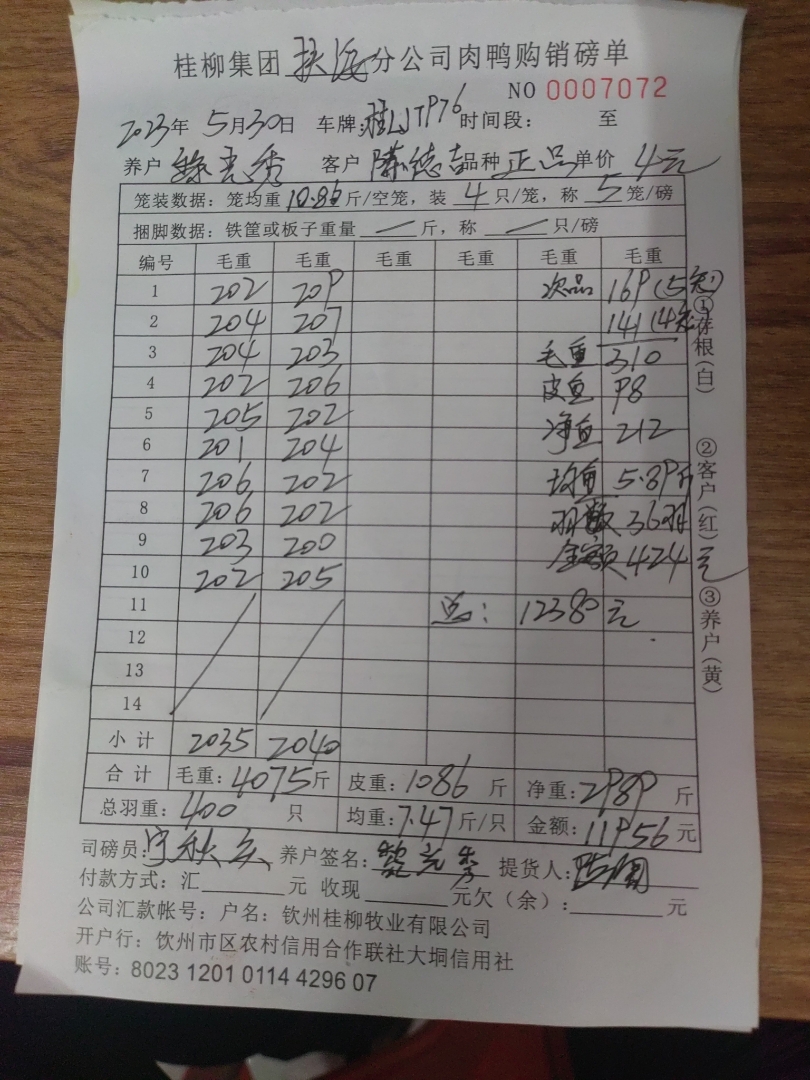 桂柳集团 扶海 分公司肉鸭购销磅单
NO 0007072
2023年 5月30日 车牌:桂LJTP76 时间段: 至
养户 黎克秀 客户 陈德吉 品种 正品 单价 4元
笼装数据: 笼均重 10.86 斤/空笼, 装 4 只/笼, 称 5 笼/磅
捆脚数据: 铁筐或板子重量 / 斤, 称 / 只/磅
编号 毛重 毛重 毛重 毛重 毛重 毛重
1 202 209 次品 169 (5笼)
2 204 207 141 (4笼)
3 204 203 毛重 310
4 202 206 皮重 98
5 205 202 净重 212
6 201 204
7 206 202 均重 5.89斤
8 206 202 羽数 36羽
9 203 200 金额 424元
10 202 205
11 总: 12380元
12
13
14
小计 2035 2040
合计 毛重: 4075斤 皮重: 1086 斤 净重: 2989 斤
总羽重: 400 只 均重: 7.47 斤/只 金额: 11956 元
司磅员: 养户签名: 提货人:
付款方式: 汇 元 收现 元欠(余): 元
公司汇款帐号: 户名: 钦州桂柳牧业有限公司
开户行: 钦州市区农村信用合作联社大垌信用社
账号: 8023 1201 0114 4296 07
①存根(白) ②客户(红) ③养户(黄)